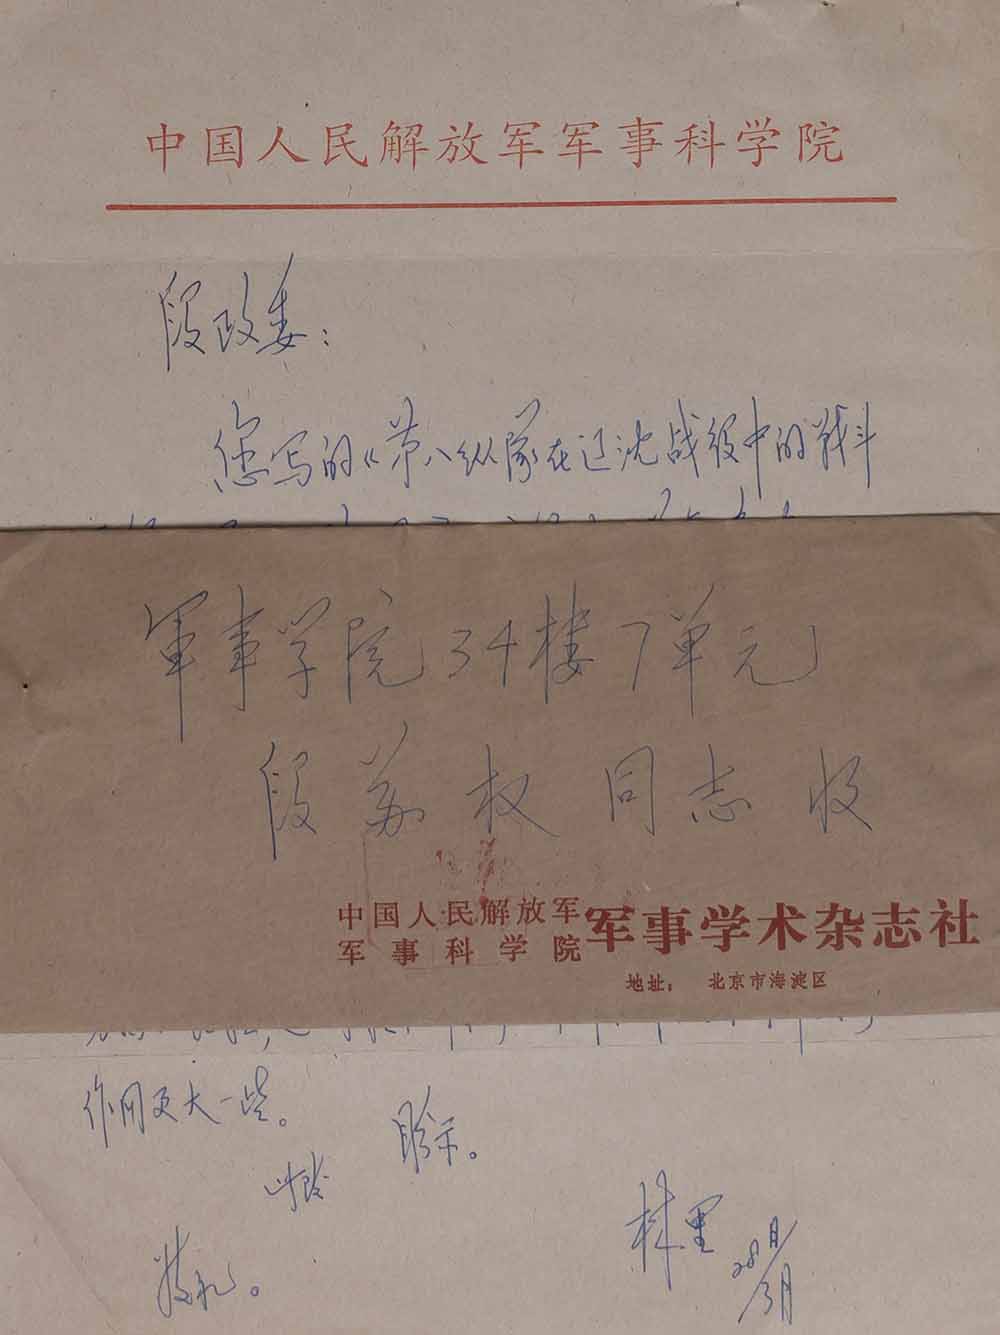 中国人民解放军军事科学院
段政委：
您写的《第八纵队在辽沈战役中的战斗
軍事学院34楼7单元
段苏权同志收
中国人民解放军
军事科学院
军事学术杂志社
地址： 北京市海淀区
作用更大一些。
盼示。
敬礼。
林里
28日/3月